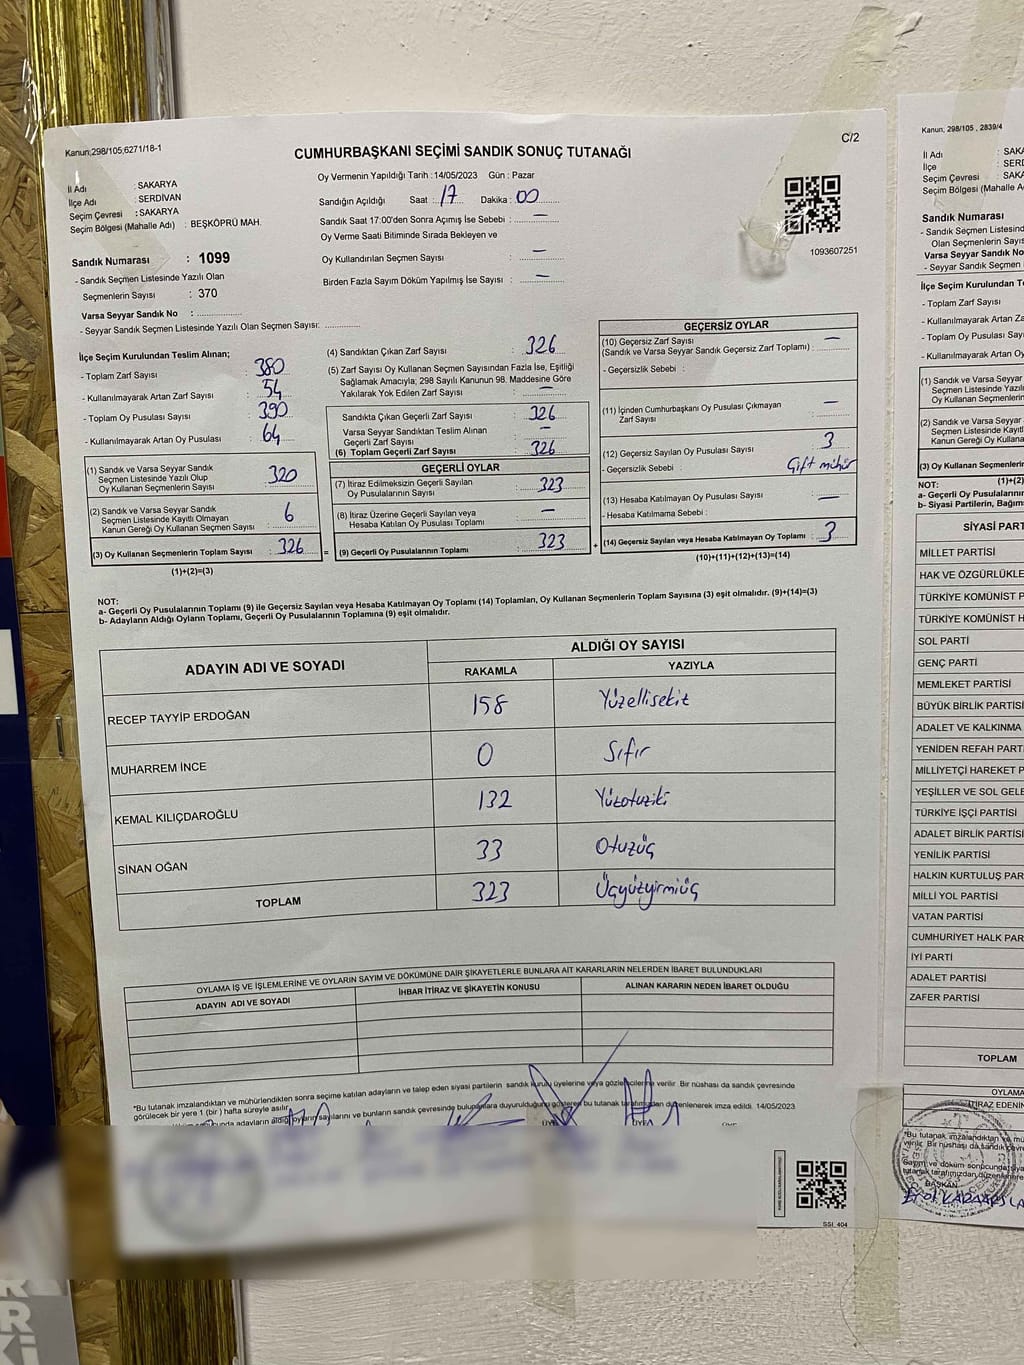 Kanun;298/105;6271/18-1
C/2
CUMHURBAŞKANI SEÇİMİ SANDIK SONUÇ TUTANAĞI
İl Adı : SAKARYA
İlçe Adı : SERDİVAN
Seçim Çevresi : SAKARYA
Seçim Bölgesi (Mahalle Adı) : BEŞKÖPRÜ MAH.
Sandık Numarası : 1099
- Sandık Seçmen Listesinde Yazılı Olan
Seçmenlerin Sayısı : 370
Varsa Seyyar Sandık No :
- Seyyar Sandık Seçmen Listesinde Yazılı Olan Seçmen Sayısı:
Oy Vermenin Yapıldığı Tarih : 14/05/2023 Gün : Pazar
Sandığın Açıldığı Saat : 17 Dakika : 00
Sandık Saat 17:00'den Sonra Açımış İse Sebebi : —
Oy Verme Saati Bitiminde Sırada Bekleyen ve
Oy Kullandırılan Seçmen Sayısı : —
Birden Fazla Sayım Döküm Yapılmış İse Sayısı : —
1093607251
İlçe Seçim Kurulundan Teslim Alınan;
- Toplam Zarf Sayısı : 380
- Kullanılmayarak Artan Zarf Sayısı : 54
- Toplam Oy Pusulası Sayısı : 390
- Kullanılmayarak Artan Oy Pusulası : 64
(1) Sandık ve Varsa Seyyar Sandık
Seçmen Listesinde Yazılı Olup
Oy Kullanan Seçmenlerin Sayısı : 320
(2) Sandık ve Varsa Seyyar Sandık
Seçmen Listesinde Kayıtlı Olmayan
Kanun Gereği Oy Kullanan Seçmen Sayısı : 6
(3) Oy Kullanan Seçmenlerin Toplam Sayısı : 326
(1)+(2)=(3)
(4) Sandıktan Çıkan Zarf Sayısı : 326
(5) Zarf Sayısı Oy Kullanan Seçmen Sayısından Fazla İse, Eşitliği
Sağlamak Amacıyla; 298 Sayılı Kanunun 98. Maddesine Göre
Yakılarak Yok Edilen Zarf Sayısı : —
Sandıkta Çıkan Geçerli Zarf Sayısı : 326
Varsa Seyyar Sandıktan Teslim Alınan
Geçerli Zarf Sayısı : —
(6) Toplam Geçerli Zarf Sayısı : 326
GEÇERLİ OYLAR
(7) İtiraz Edilmeksizin Geçerli Sayılan
Oy Pusulalarının Sayısı : 323
(8) İtiraz Üzerine Geçerli Sayılan veya
Hesaba Katılan Oy Pusulası Toplamı : —
= (9) Geçerli Oy Pusulalarının Toplamı : 323
GEÇERSİZ OYLAR
(10) Geçersiz Zarf Sayısı : —
(Sandık ve Varsa Seyyar Sandık Geçersiz Zarf Toplamı) :
- Geçersizlik Sebebi :
(11) İçinden Cumhurbaşkanı Oy Pusulası Çıkmayan
Zarf Sayısı : —
(12) Geçersiz Sayılan Oy Pusulası Sayısı : 3
- Geçersizlik Sebebi : Çift mühür
(13) Hesaba Katılmayan Oy Pusulası Sayısı : —
- Hesaba Katılmama Sebebi :
+ (14) Geçersiz Sayılan veya Hesaba Katılmayan Oy Toplamı : 3
(10)+(11)+(12)+(13)=(14)
NOT:
a- Geçerli Oy Pusulalarının Toplamı (9) ile Geçersiz Sayılan veya Hesaba Katılmayan Oy Toplamı (14) Toplamları, Oy Kullanan Seçmenlerin Toplam Sayısına (3) eşit olmalıdır. (9)+(14)=(3)
b- Adayların Aldığı Oyların Toplamı, Geçerli Oy Pusulalarının Toplamına (9) eşit olmalıdır.
ADAYIN ADI VE SOYADI ALDIĞI OY SAYISI
RAKAMLA YAZIYLA
RECEP TAYYİP ERDOĞAN 158 Yüzellisekiz
MUHARREM İNCE 0 Sıfır
KEMAL KILIÇDAROĞLU 132 Yüzotuziki
SİNAN OĞAN 33 Otuzüç
TOPLAM 323 Üçyüzyirmiüç
OYLAMA İŞ VE İŞLEMLERİNE VE OYLARIN SAYIM VE DÖKÜMÜNE DAİR ŞİKAYETLERLE BUNLARA AİT KARARLARIN NELERDEN İBARET BULUNDUKLARI
ADAYIN ADI VE SOYADI İHBAR İTİRAZ VE ŞİKAYETİN KONUSU ALINAN KARARIN NEDEN İBARET OLDUĞU
*Bu tutanak imzalandıktan ve mühürlendikten sonra seçime katılan adayların ve talep eden siyasi partilerin sandık kurulu üyelerine veya gözlemcilerine verilir. Bir nüshası da sandık çevresinde
görülecek bir yere 1 (bir) hafta süreyle asılır.
adayların aldığı oyların sayılarını ve bunların sandık çevresinde bulunanlara duyurulduğunu gösteren bu tutanak tarafımızdan düzenlenerek imza edildi. 14/05/2023
ÜYE ÜYE
SSİ_404
Kanun; 298/105 , 2839/4
İl Adı : SAKA
İlçe : SERD
Seçim Çevresi : SAKA
Seçim Bölgesi (Mahalle A
Sandık Numarası
- Sandık Seçmen Listesind
Olan Seçmenlerin Sayıs
Varsa Seyyar Sandık No
- Seyyar Sandık Seçmen
İlçe Seçim Kurulundan Te
- Toplam Zarf Sayısı
- Kullanılmayarak Artan Za
- Toplam Oy Pusulası Sayıs
- Kullanılmayarak Artan Oy
(1) Sandık ve Varsa Seyyar
Seçmen Listesinde Yazıl
Oy Kullanan Seçmenlerin
(2) Sandık ve Varsa Seyyar
Seçmen Listesinde Kayıtl
Kanun Gereği Oy Kullana
(3) Oy Kullanan Seçmenlerin
(1)+(2)
NOT:
a- Geçerli Oy Pusulalarının
b- Siyasi Partilerin, Bağım
SİYASİ PART
MİLLET PARTİSİ
HAK VE ÖZGÜRLÜKLE
TÜRKİYE KOMÜNİST P
TÜRKİYE KOMÜNİST H
SOL PARTİ
GENÇ PARTİ
MEMLEKET PARTİSİ
BÜYÜK BİRLİK PARTİSİ
ADALET VE KALKINMA
YENİDEN REFAH PARTİ
MİLLİYETÇİ HAREKET P
YEŞİLLER VE SOL GELE
TÜRKİYE İŞÇİ PARTİSİ
ADALET BİRLİK PARTİSİ
YENİLİK PARTİSİ
HALKIN KURTULUŞ PAR
MİLLİ YOL PARTİSİ
VATAN PARTİSİ
CUMHURİYET HALK PAR
İYİ PARTİ
ADALET PARTİSİ
ZAFER PARTİSİ
TOPLAM
OYLAMA
İTİRAZ EDENİN
*Bu tutanak imzalandıktan ve mü
verilir. Bir nüshası da sandık çevre
Sayım ve döküm sonucunda siya
tutanak tarafımızdan düzenlenere
BAŞKAN